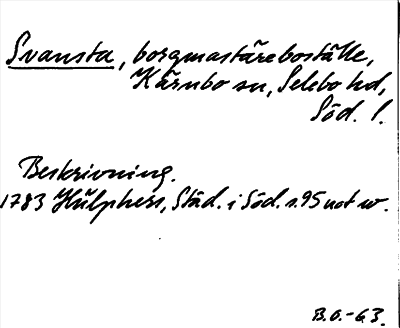 Svansta, borgmästareboställe,
Kärnbo sn, Selebo hd,
Söd. l.
Beskrivning.
1783 Hülphers, Städ. i Söd. s. 95 not w.
B.O.-63.